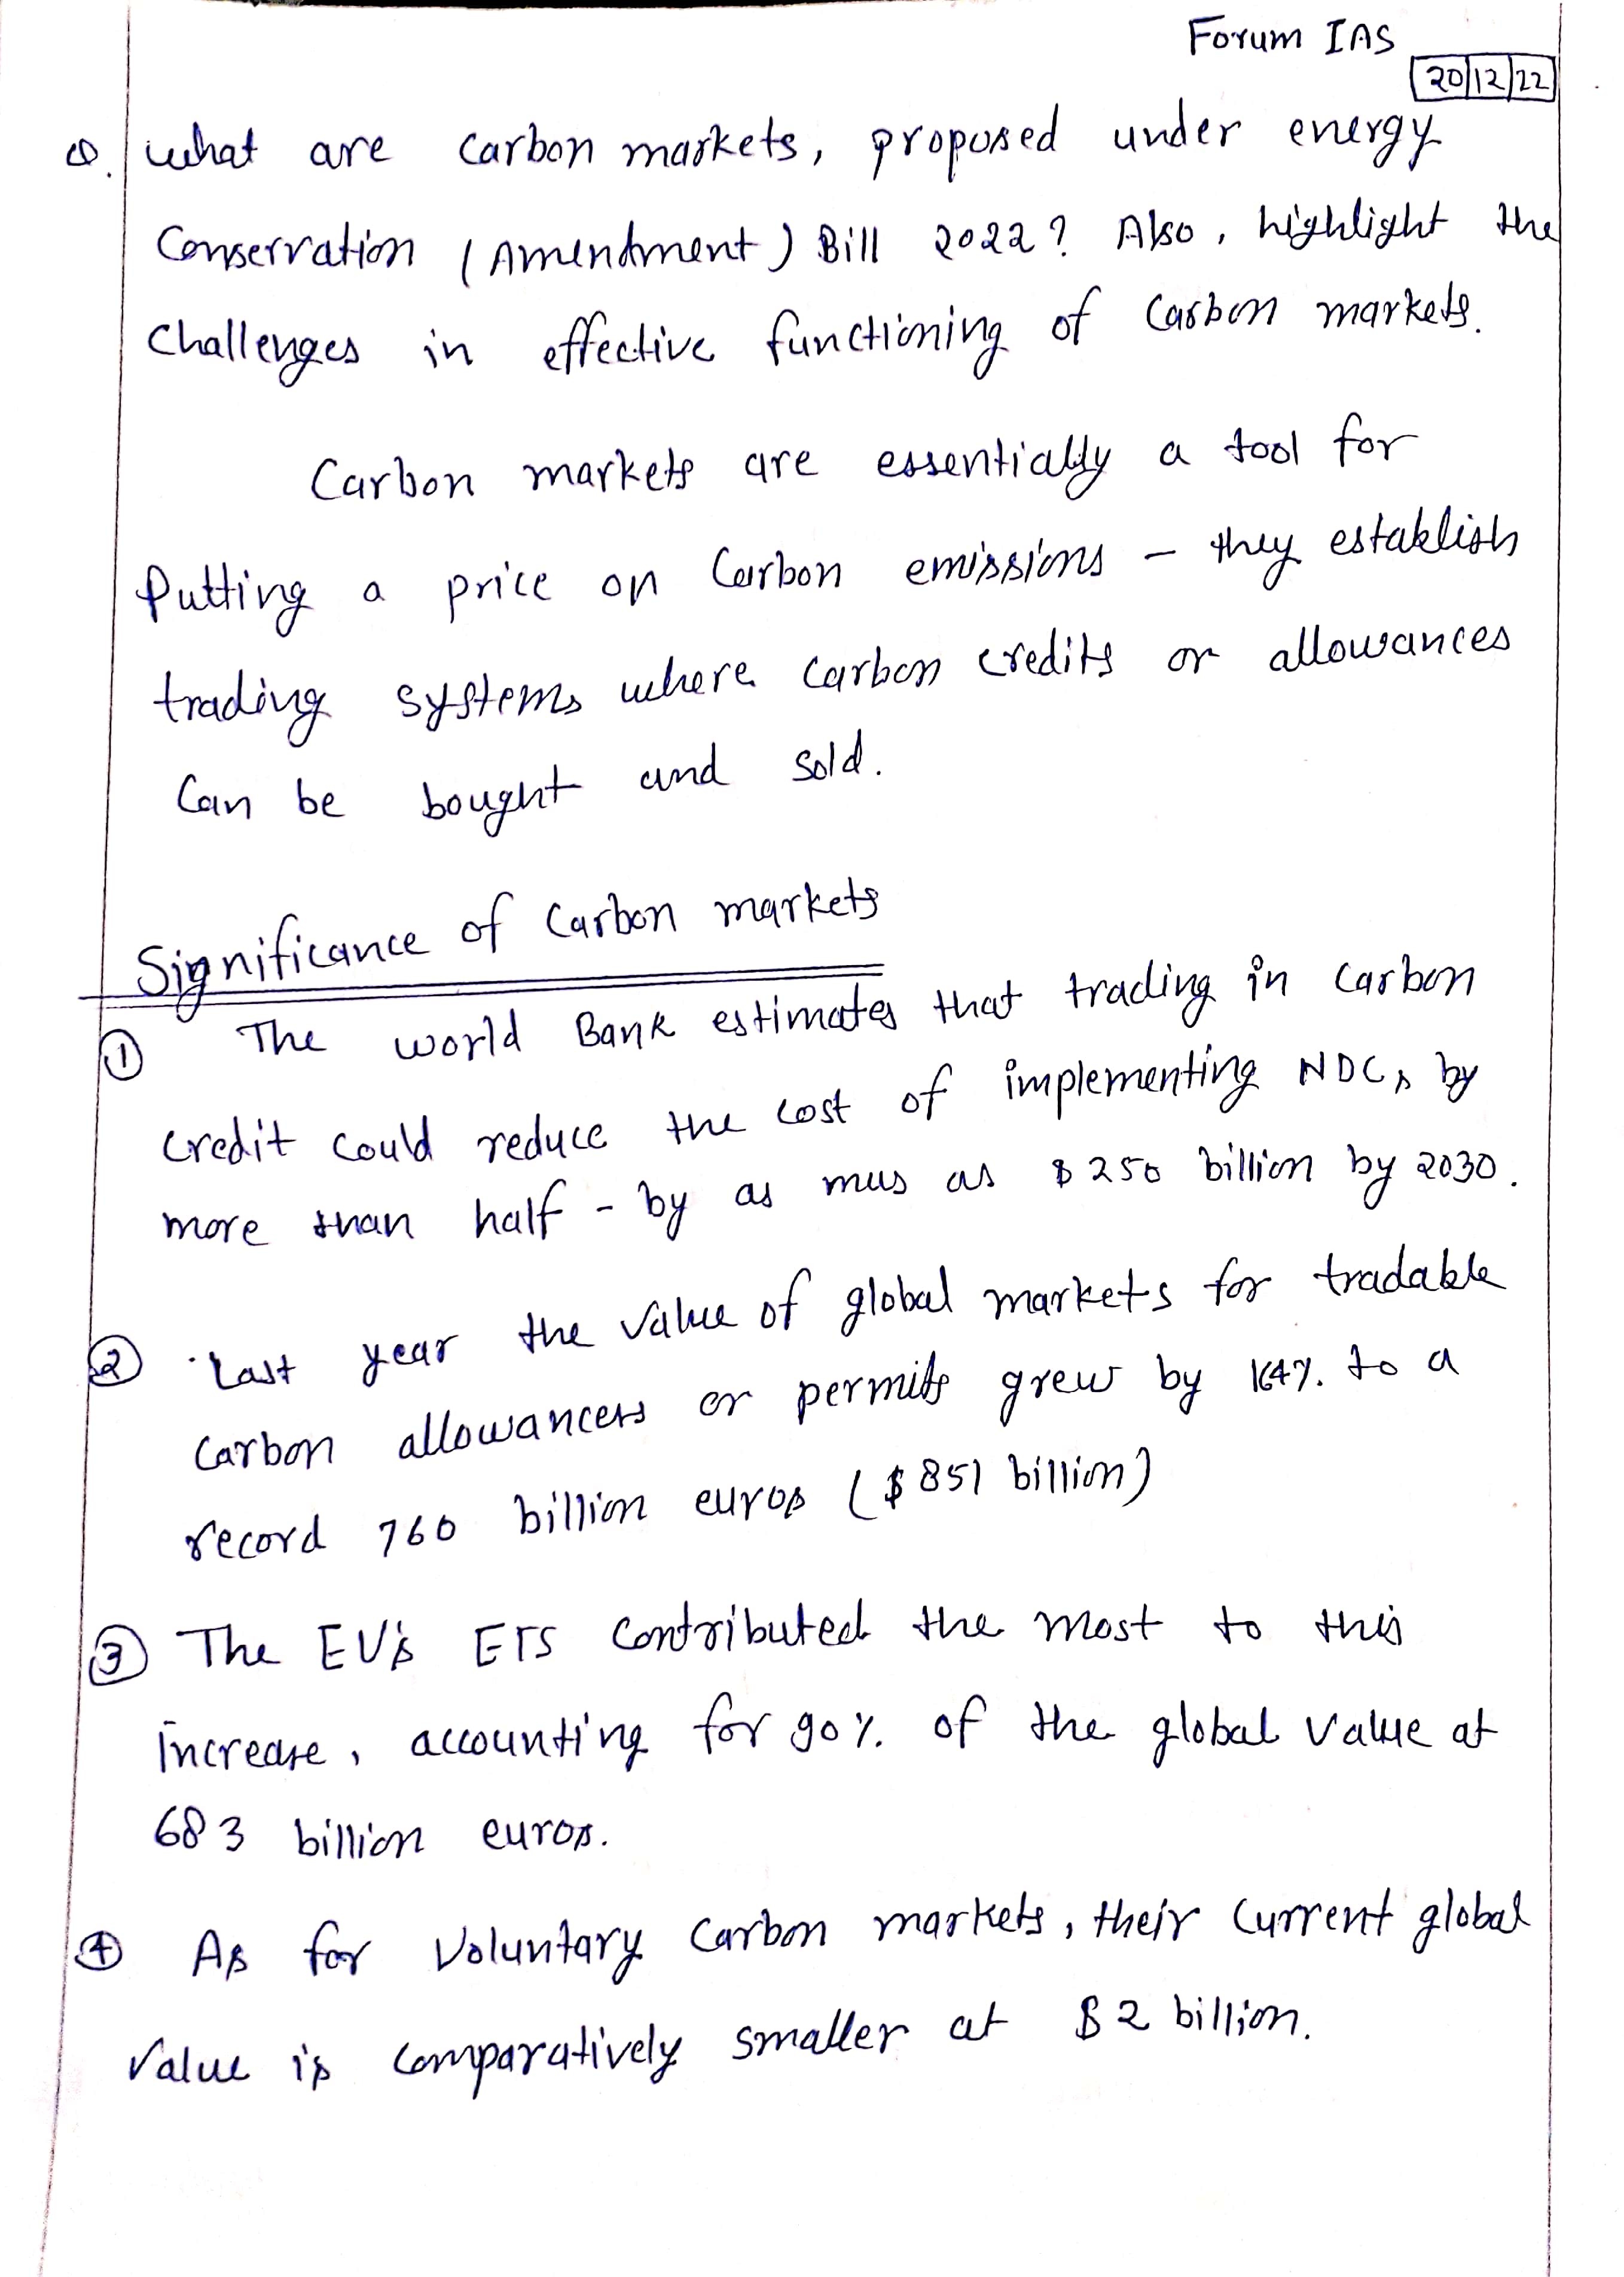 Forum IAS
20/12/22
Q. what are carbon markets, proposed under energy
Conservation (Amendment) Bill 2022? Also, highlight the
Challenges in effective functioning of Carbon markets.
Carbon markets are essentially a tool for
Putting a price on Carbon emissions - they establish
trading systems where carbon credits or allowances
Can be bought and sold.
Significance of Carbon markets
① The world Bank estimates that trading in carbon
credit could reduce the cost of implementing NDCs by
more than half - by as mus as $ 250 billion by 2030.
② Last year the value of global markets for tradable
Carbon allowancess or permits grew by 164% to a
record 760 billion euros ($ 851 billion)
③ The EU's ETS Contributed the most to this
increase, accounting for 90% of the global value at
683 billion euros.
④ As for Voluntary Carbon markets, their Current global
value is comparatively smaller at $ 2 billion.